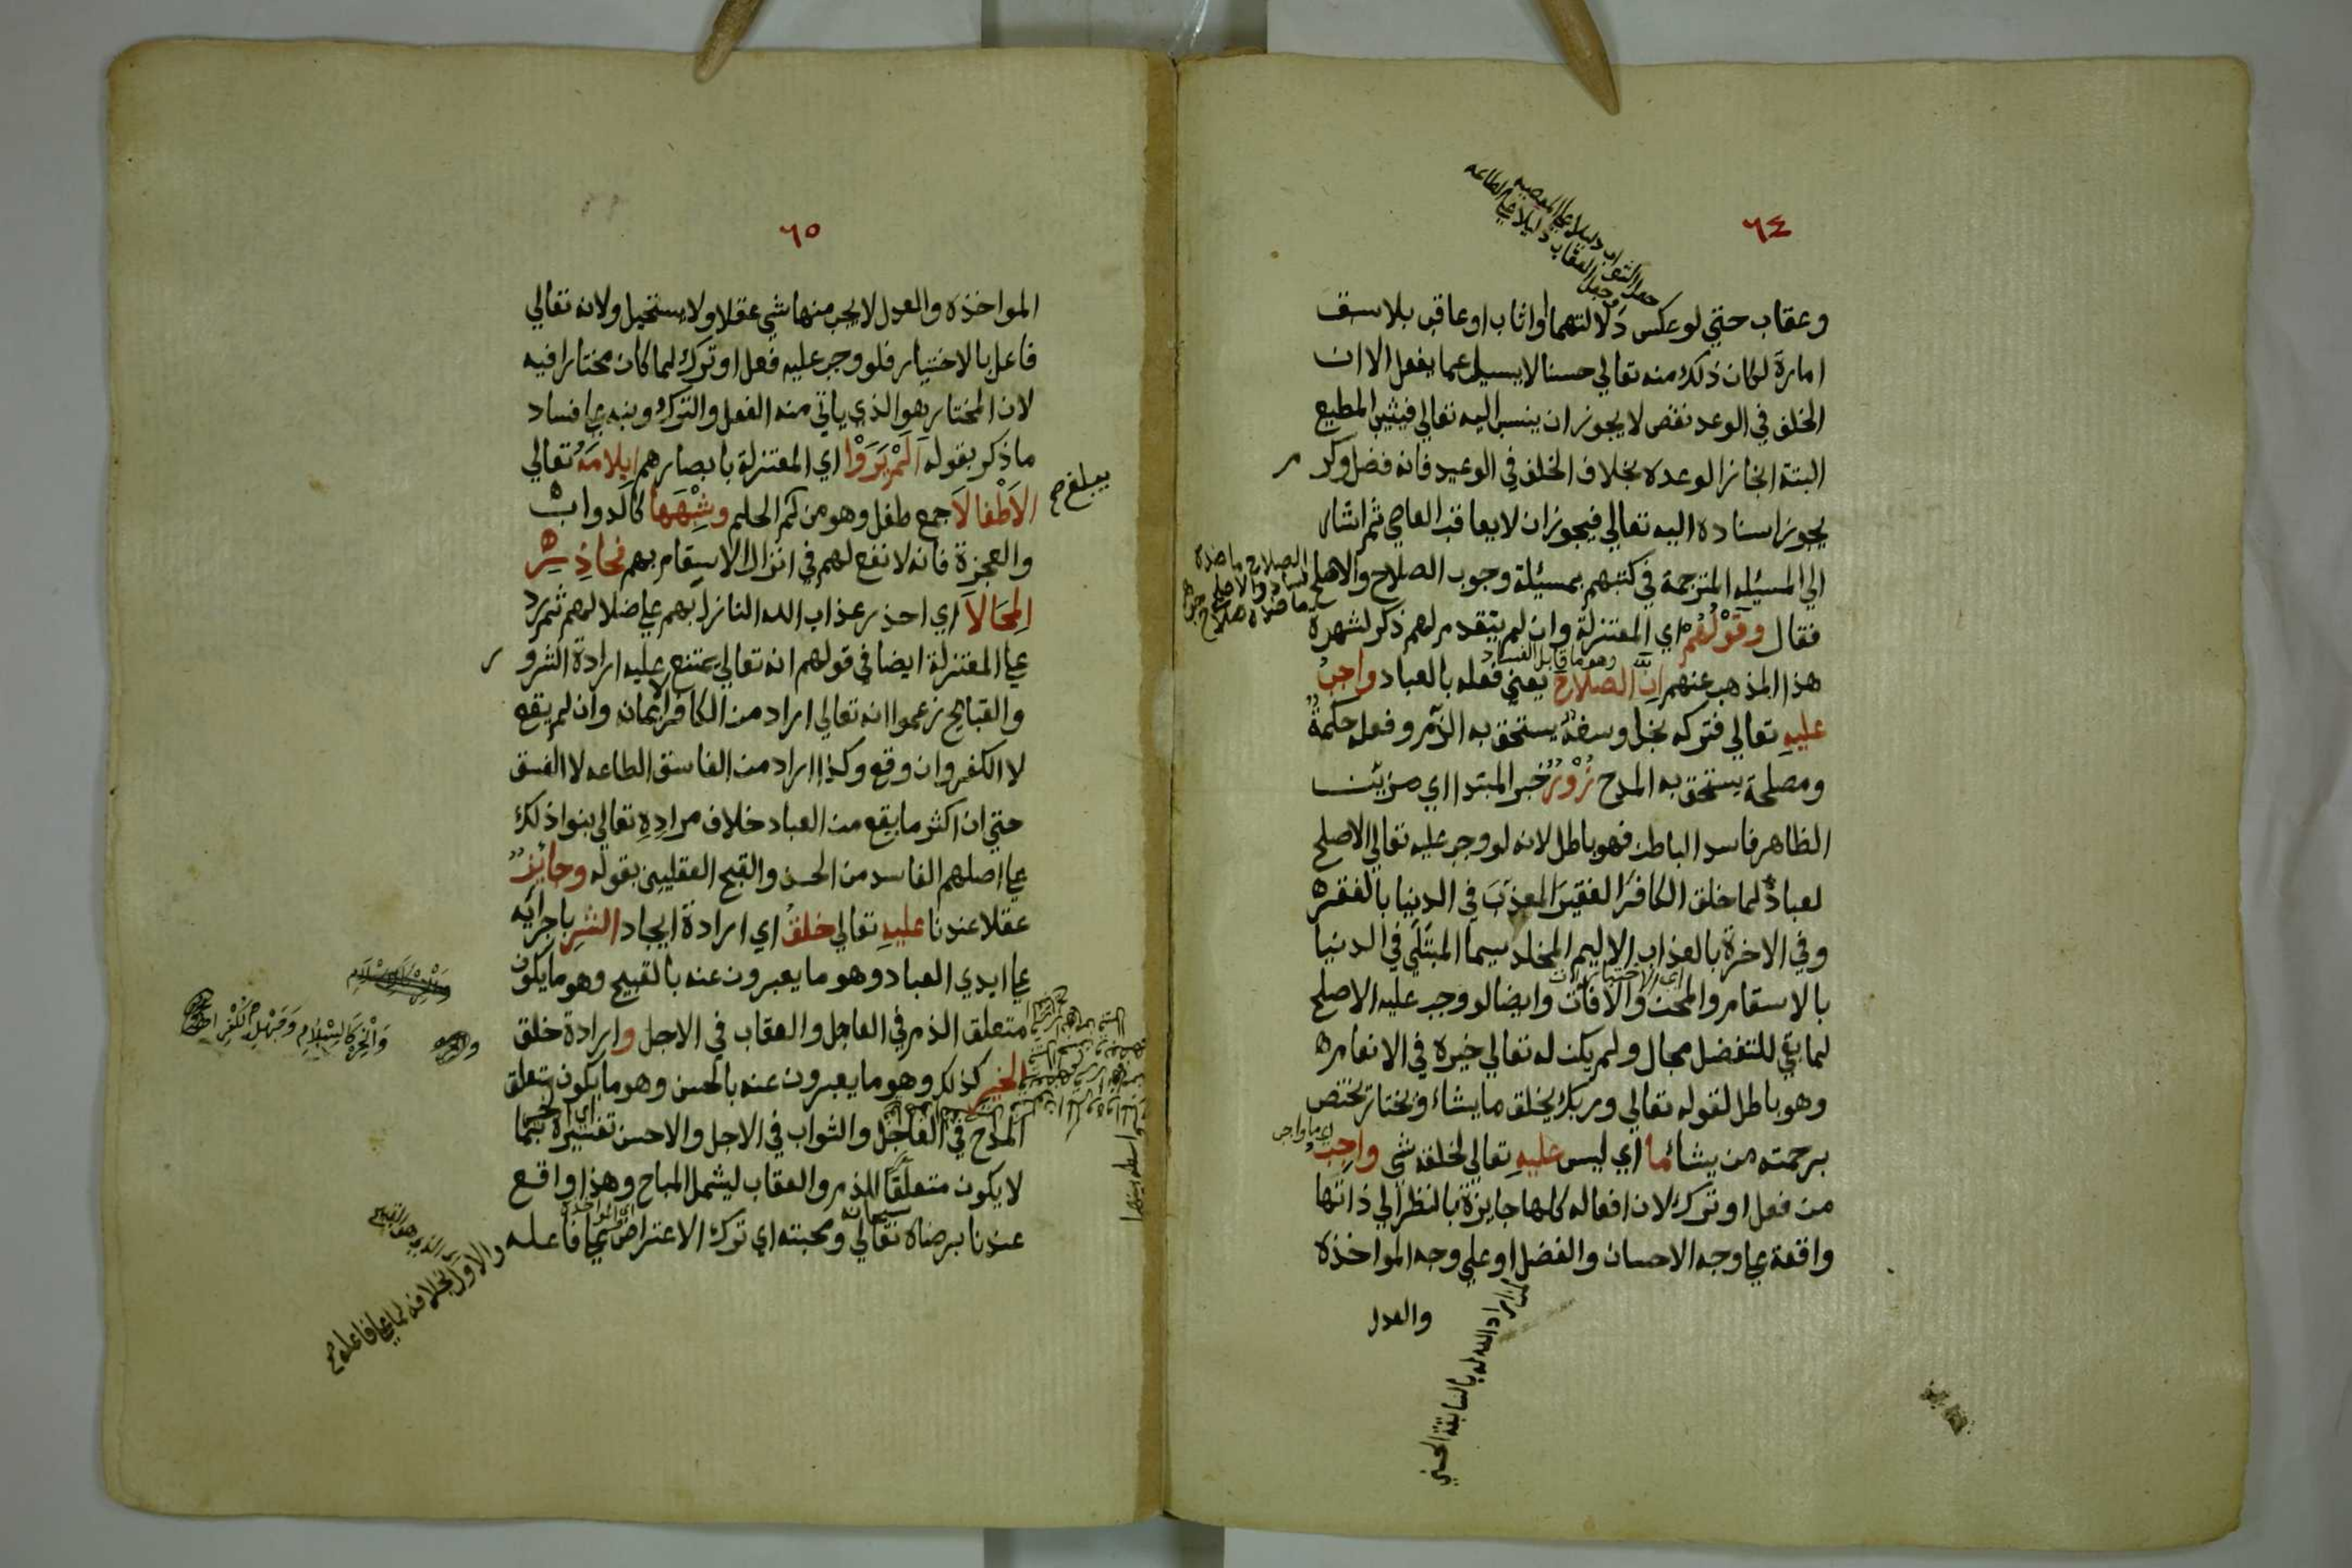 ٦٤
جعل الثواب دليلا على المعصيه
وجعل العقاب دليلا على الطاعه
وعقاب حتي لو عكس دلالتهما واثاب اوعاقب بلا سبق
امارة لكان ذلك منه تعالي حسنا لا يسيل عما يفعل الا ان
الخلف في الوعد نقص لا يجوز ان ينسب اليه تعالي فيثيب المطيع
البتة انجازا لوعده بخلاف الخلف في الوعيد فانه فضل وكر م
يجوز اسناده اليه تعالي فيجوز ان لا يعاقب العاصي ثم اشار
الي المسيله المترجمة في كتبهم بمسئلة وجوب الصلاح والاصلح
الصلاح ما ضده
فساد والاصلح
ما ضده صلاح
فقال وَقَوْلُهُم اي المعتزلة وان لم يتقدم لهم ذكر لشهرة
وهو ما قابل الفساد
هذا المذهب عنهم اِنَّ الصلاحَ يعني فعله بالعباد واجبٌ
عليهِ تعالي فتركه بخل وسفه يستحق به الذم وفعله حكمة
ومصلحة يستحق به المدح زُوْرٌ خبر المبتدا اي مزين
الظاهر فاسد الباطن فهو باطل لانه لو وجب عليه تعالي الاصلح
لعباده لما خلق الكافر الفقير المعذب في الدنيا بالفقر
وفي الاخرة بالعذاب الاليم المخلد سيما المبتلي في الدنيا
بالاسقام والمحن والافات وايضا لو وجب عليه الاصلح
لما بقي للتفضل مجال ولم يكن له تعالي خيرة في الانعام
وهو باطل لقوله تعالي وربك يخلق ما يشاء ويختار يختص
اي ما واجب
برحمته من يشاء ما اي ليس عليهِ تعالي لخلقه شي واجبٌ
من فعل او ترك لان افعاله كلها جايزة بالنظر الي ذاتها
واقعة علي وجه الاحسان والفضل او علي وجه المواخذه
والعدل
٦٥
المواخذه والعدل لا يجب منها شي عقلا ولا يستحيل ولانه تعالي
فاعل بالاختيار فلو وجب عليه فعل او ترك لما كان مختارا فيه
لان المختار هو الذي ياتي منه الفعل والترك ونبه علي فساد
ما ذكر بقوله اَلَمْ يَرَوْا اي المعتزلة بابصارهم اِيلامَهُ تعالي
الاَطْفالاَ جمع طفل وهو من لم يبلغ الحلم وشِبْهَهَا كالدواب
والعجزة فانه لا نفع لهم في انزال الاسقام بهم فحاذِرِ
المِحَالاَ اي احذر عذاب الله النازل بهم علي ضلالهم ثم رد
علي المعتزلة ايضا في قولهم انه تعالي يمتنع عليه ارادة الشرور
والقبايح زعموا انه تعالي اراد من الكافر الايمان وان لم يقع
لا الكفر وان وقع وكذا اراد من الفاسق الطاعه لا الفسق
حتي ان اكثر ما يقع من العباد خلاف مرادِهِ تعالي بنوا ذلك
علي اصلهم الفاسد من الحسن والقبح العقليين بقوله وجايزٌ
عقلا عندنا عليهِ تعالي خلقُ اي ارادة ايجاد الشرِ باجرائه
علي ايدي العباد وهو ما يعبرون عنه بالقبيح وهو ما يكون
متعلق الذم في العاجل والعقاب في الاجل وارادة خلق
الخيرِ كذلك وهو ما يعبرون عنه بالحسن وهو ما يكون متعلق
المدح في العاجل والثواب في الاجل والاحسن تفسيره بما
لا يكون متعلقا للذم والعقاب ليشمل المباح وهذا واقع
سبحانه
عندنا برضاه تعالي ومحبته اي ترك الاعتراض علي فاعله
كالاسلام وجهل الكفر
والاول بخلافه لما علي فاعله